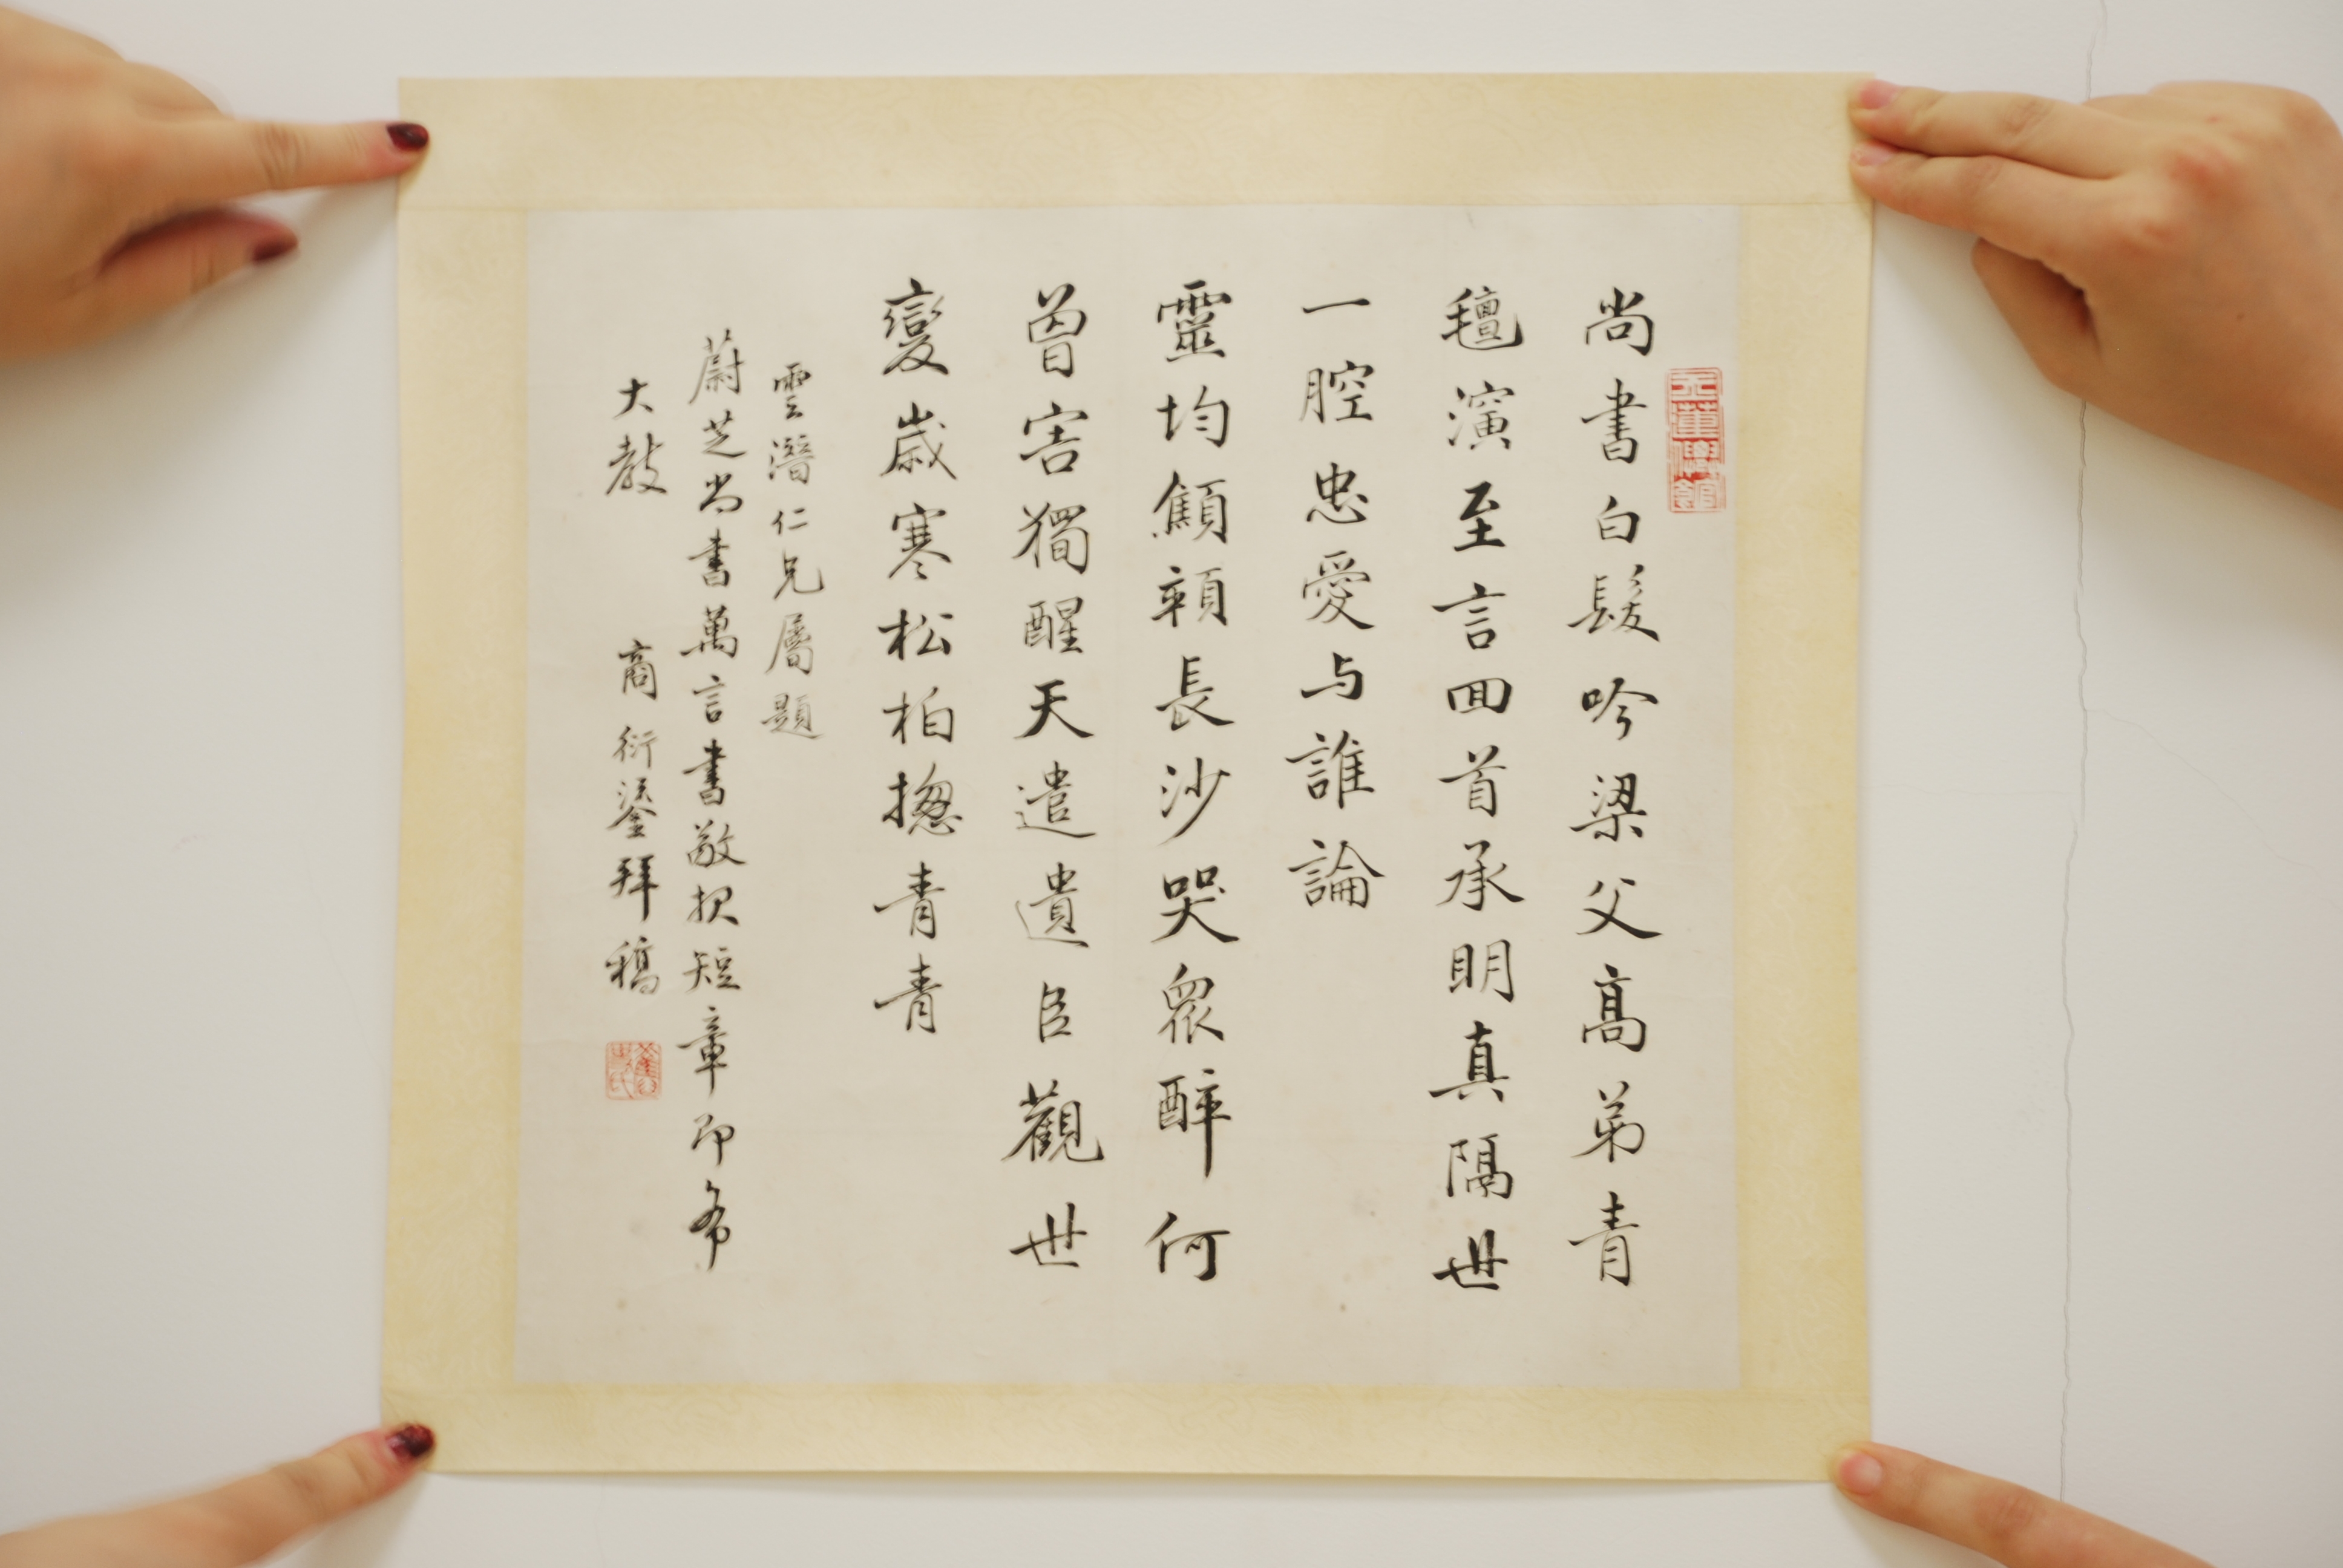 尚書白髮吟梁父高弟青
氊演至言回首承明真隔世
一腔忠愛与誰論
靈均顦顇長沙哭眾醉何
曾害獨醒天遣遺臣觀世
變歲寒松柏揔青青
雲潛仁兄屬題
蔚芝尚書萬言書敬拟短章即希
大教
商衍鎏拜稿